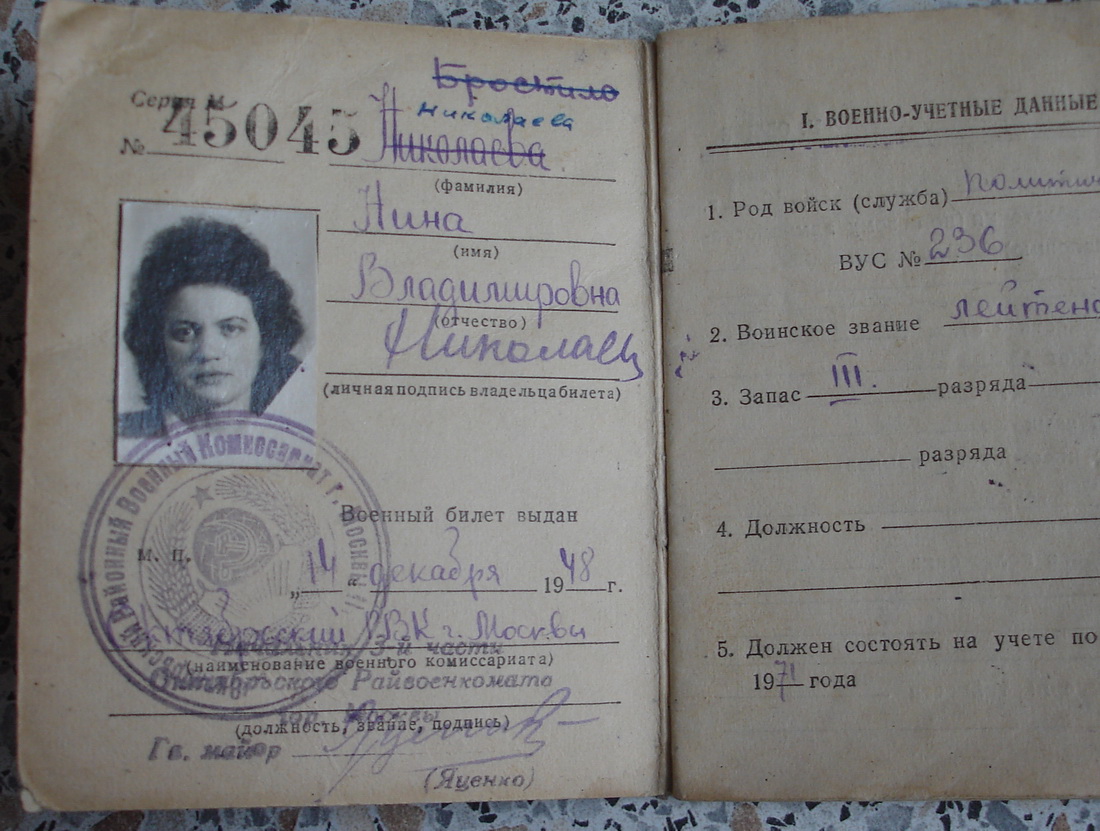 Бростило
Николаева
Серия М
№ 45045 Николаева
(фамилия)
Нина
(имя)
Владимировна
(отчество)
Николаев
(личная подпись владельца билета)
Районный Военный Комиссариат г. Москвы
Военный билет выдан
м. п.
„14 “ декабря 1948 г.
РВК г. Москвы
Начальник 3-й части
(наименование военного комиссариата)
Октябрьского Райвоенкомата
гор. Москвы
(должность, звание, подпись)
Гв. майор
(Яценко)
I. ВОЕННО-УЧЕТНЫЕ ДАННЫЕ
1. Род войск (служба) политич
ВУС № 236
2. Воинское звание лейтена
3. Запас III. разряда
разряда
4. Должность
5. Должен состоять на учете по
1971 года